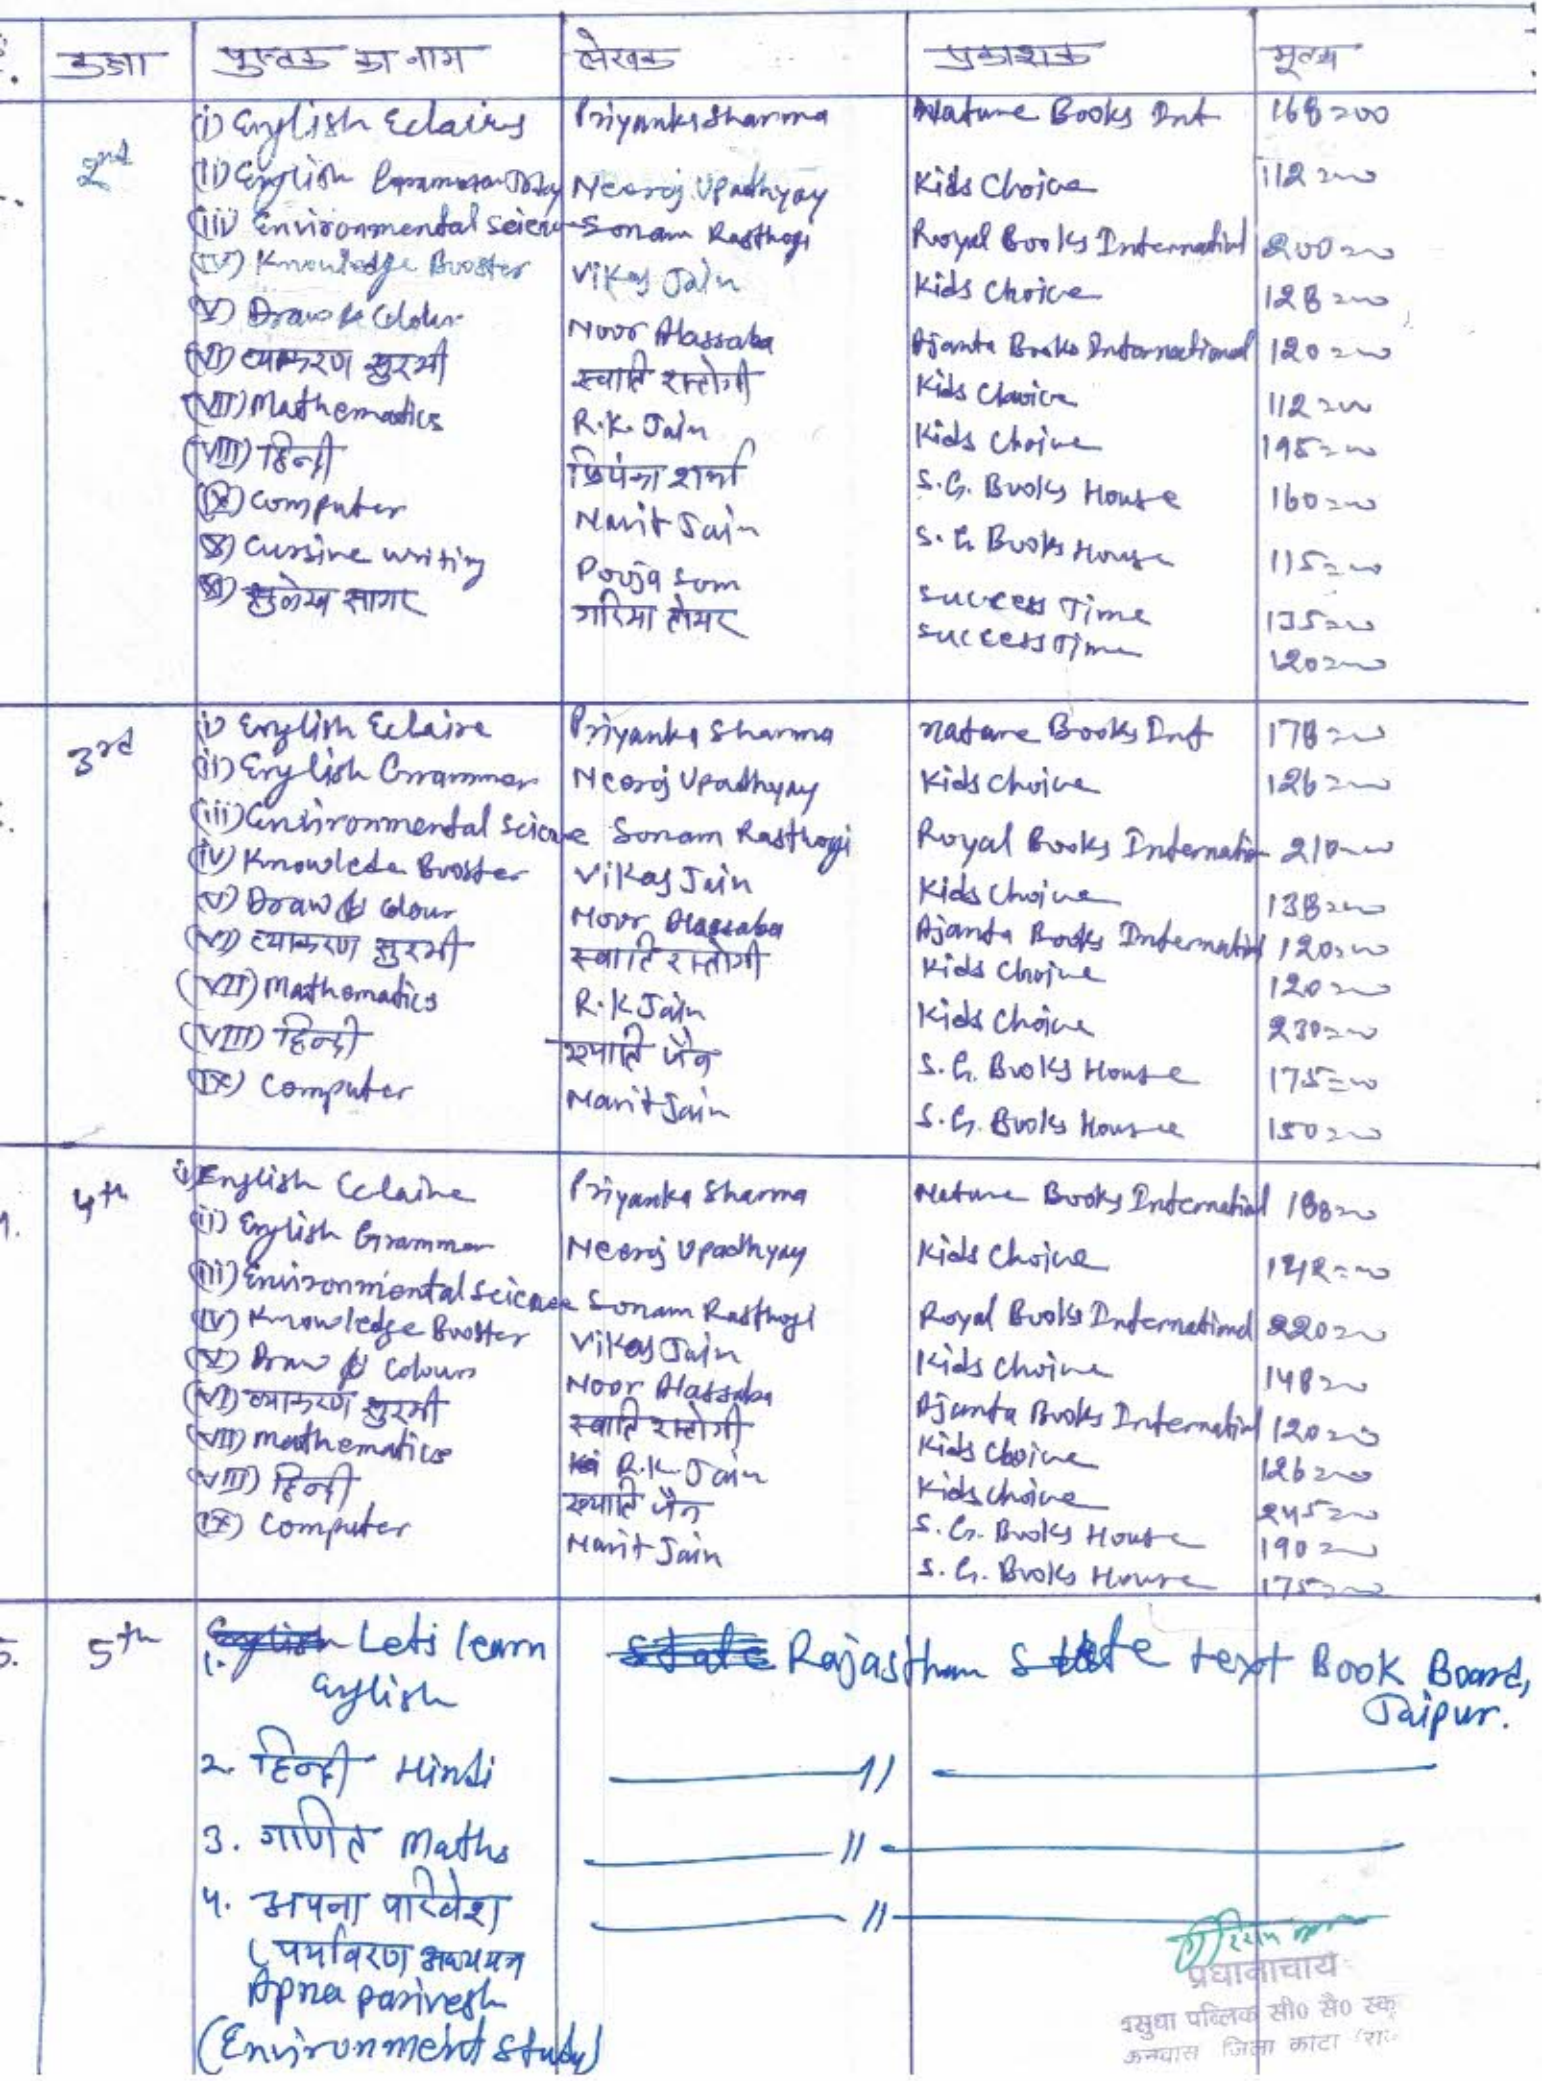 कक्षा पुस्तक का नाम लेखक प्रकाशक मूल्य
2nd (i) English Eclairs Priyanka Sharma Nature Books Int 168=00
(ii) English Neeraj Upadhyay Kids Choice 112=00
(iii) Environmental Sonam Rasthogi Royal Books International 200=00
(iv) Knowledge Booster Vikas Jain Kids Choice 128=00
(V) Draw & Colour Noor Alassaba Ajanta Books International 120=00
(VI) व्याकरण सुरभी स्वाति रस्तोगी Kids Choice 112=00
(VII) Mathematics R.K. Jain Kids Choice 195=00
(VIII) हिन्दी प्रियंका शर्मा S.G. Books House 160=00
(IX) Computer Navit Jain S.G. Books House 115=00
(X) Cursine writing Pooja Som Success Time 135=00
(XI) सुलेख सागर गरिमा तोमर Success Time 120=00
3rd (i) English Eclaire Priyanka Sharma Nature Books Int 178=00
(ii) English Grammer Neeraj Upadhyay Kids Choice 126=00
(iii) Environmental Science Sonam Rasthogi Royal Books Internatin 210=00
(iv) Knowlede Booster Vikas Jain Kids Choice 138=00
(v) Draw & Colour Noor Alassaba Ajanta Books International 120=00
(VI) व्याकरण सुरभी स्वाति रस्तोगी Kids Choice 120=00
(VII) Mathematics R.K Jain Kids Choice 230=00
(VIII) हिन्दी ख्याति जैन S.G. Books House 175=00
(IX) Computer Navit Jain S.G. Books House 150=00
4th (i) English Eclaire Priyanka Sharma Nature Books International 188=00
(ii) English Grammer Neeraj Upadhyay Kids Choice 142=00
(iii) Environmental Science Sonam Rasthogi Royal Books International 220=00
(IV) Knowledge Booster Vikas Jain Kids Choice 148=00
(V) Draw & Colours Noor Alassaba Ajanta Books International 120=00
(VI) व्याकरण सुरभी स्वाति रस्तोगी Kids Choice 126=00
(VII) mathematics R.K. Jain Kids choice 245=00
(VIII) हिन्दी ख्याति जैन S.G. Books House 190=00
(IX) Computer Navit Jain S.G. Books House 175=00
5. 5th 1. Lets learn Rajasthan State text Book Board,
English Jaipur.
2. हिन्दी Hindi — 〃 —
3. गणित Maths — 〃 —
4. अपना परिवेश — 〃 —
(पर्यावरण अध्ययन
Apna parivesh
(Environment Study)
प्रधानाचार्य
वसुधा पब्लिक सी० सै० स्कू
कनवास जिला कोटा (राज